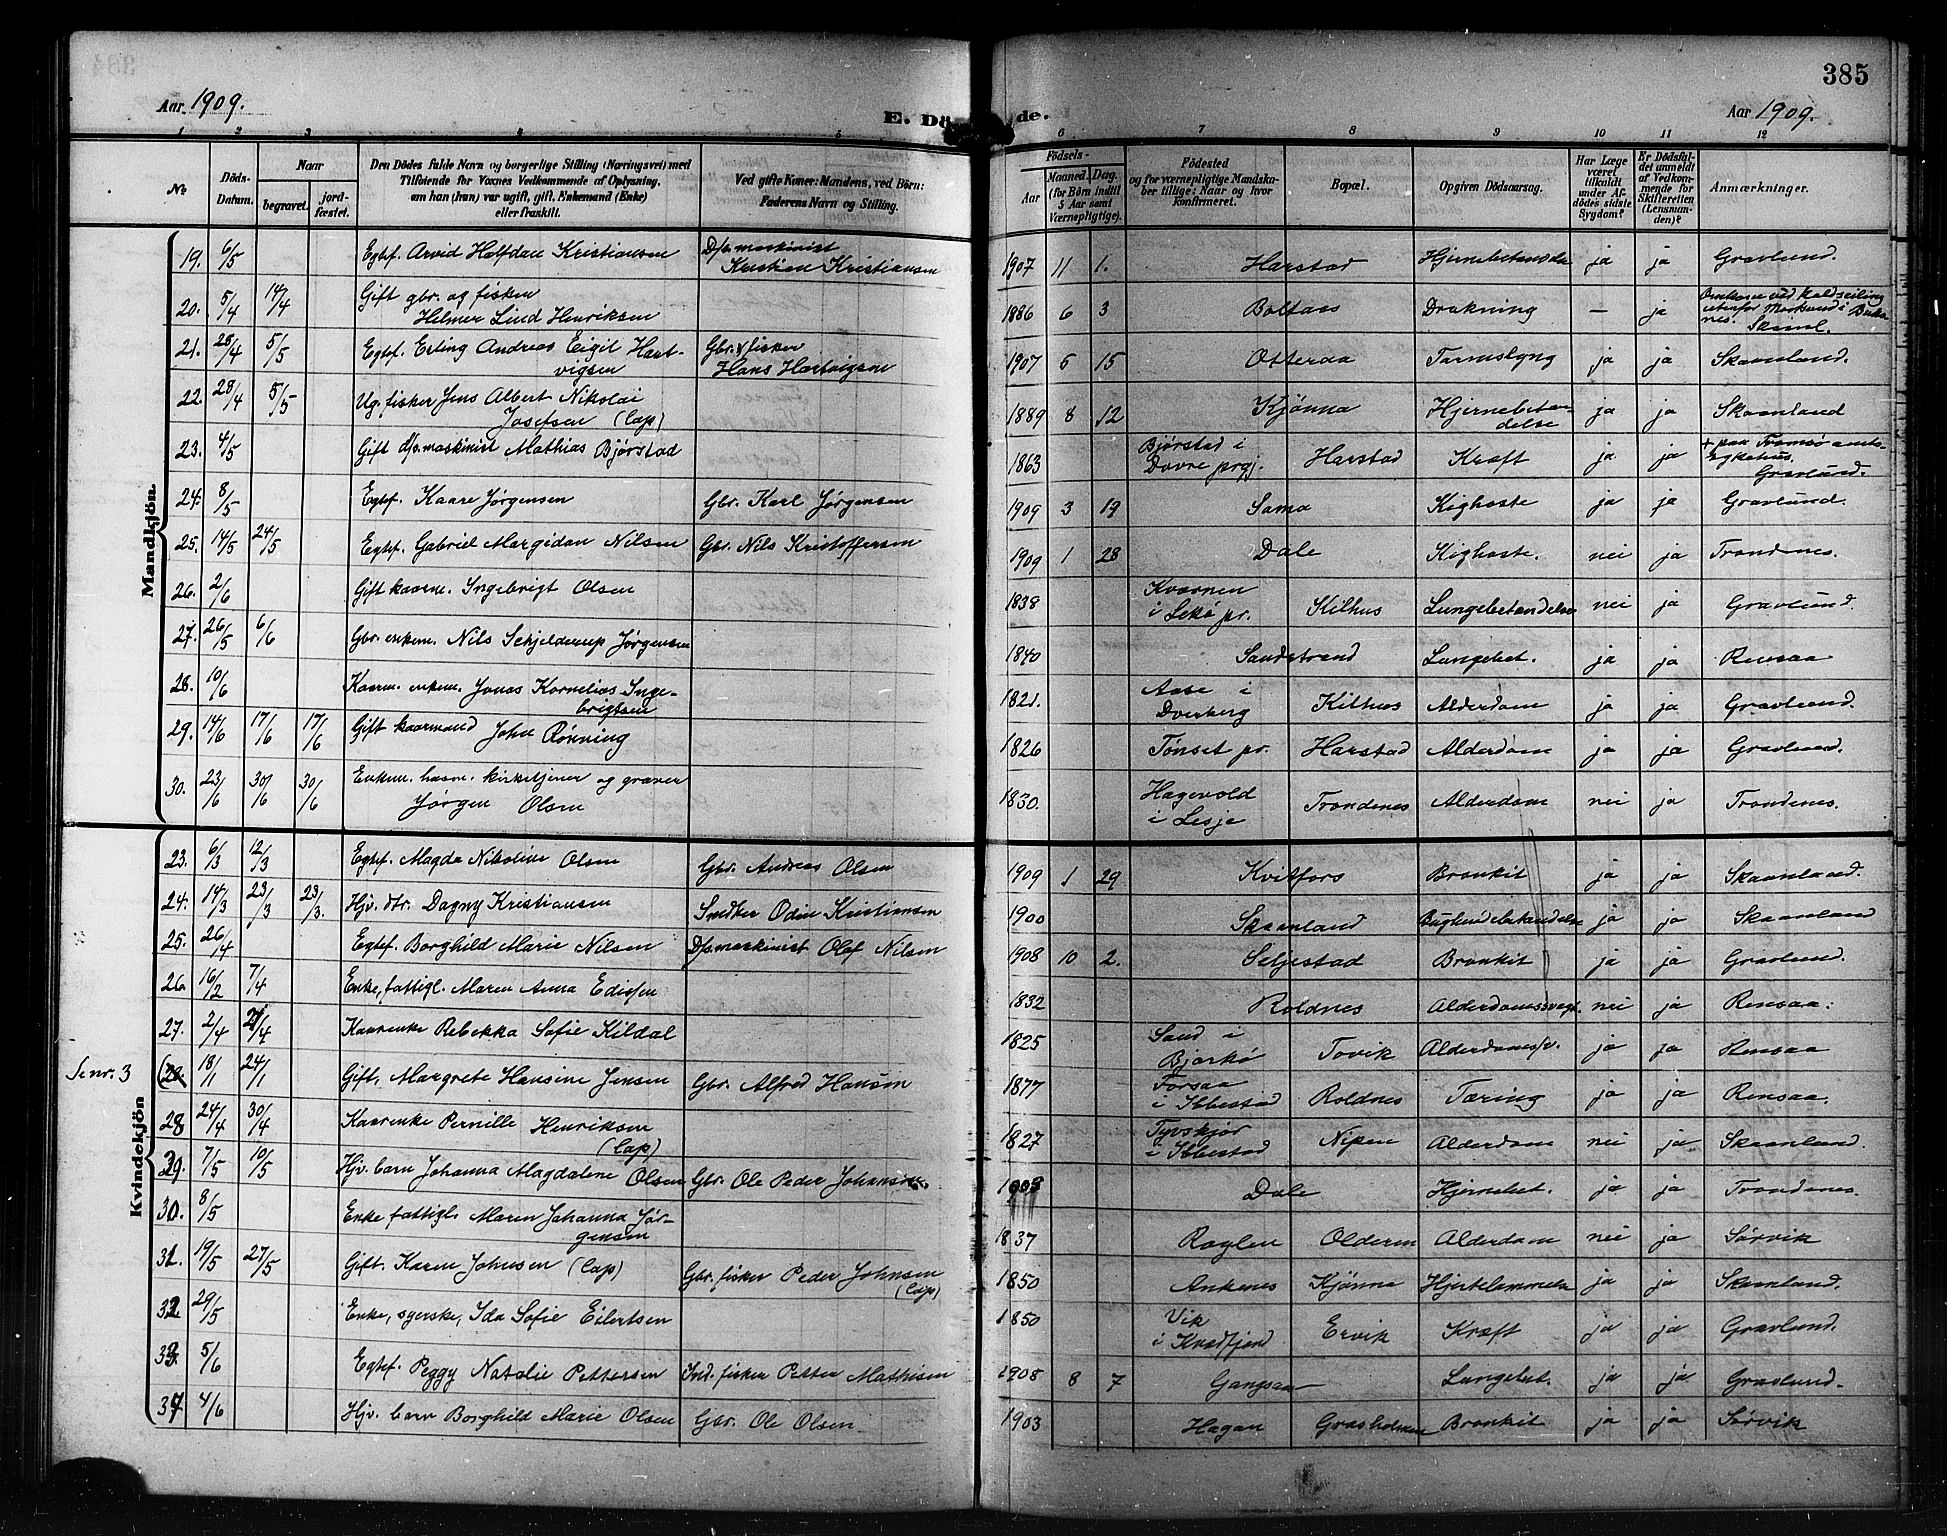 385
Aar 1909.
E. Dö de.
Aar 1909.
1 2 3 4 5 6 7 8 9 10 11 12
No
Döds-Datum.
Naar
begravet.
jord-fæstet.
Den Dödes fulde Navn og borgerlige Stilling (Næringsvei) med
Tilföiende for Voxnes Vedkommende af Oplysning,
om han (hun) var ugift, gift, Enkemand (Enke)
eller fraskilt.
Ved gifte Koner: Mandens, ved Börn:
Faderens Navn og Stilling.
Födsels-
Aar
Maaned. Dag.
(for Börn indtil
5 Aar samt
Værnepligtige).
Födested
og for værnepligtige Mandska-
ber tillige: Naar og hvor
konfirmeret.
Bopæl.
Opgiven Dödsaarsag.
Har Læge
været
tilkaldt
under Af-
dödes sidste
Sygdom?
Er Dödsfal-
det anmeldt
af Vedkom-
mende for
Skifteretten
(Lensman-
den)?
Anmærkninger.
Mandkjön.
19. 6/5 Egtef. Arvid Halfdan Kristiansen D/s. maskinist Kristian Kristiansen 1907 11 1. Harstad Hjernebetændelse ja ja Gravlund.
20. 5/4 14/4 Gift gbr. og fisker Helmer Lind Henriksen 1886 6 3 Boltaas Drukning — ja Omkom ved Kuldseiling
21. 28/4 5/5 Egtef. Erling Andreas Eigil Hartvigsen Gbr. & fisker Hans Hartvigsen 1907 5 15 Otteraa Tarmslyng ja ja Skaanland.
22. 28/4 5/5 Ug. fisker Jens Albert Nikolai Josefsen (Lap) 1889 8 12 Kjønna Hjernebetændelse ja ja Skaanland
23. 4/5 Gift d/s. maskinist Mathias Bjørstad 1863 Bjørstad i Dovre prgj. Harstad Kræft ja ja + paa Tromsø amts-sykehus. Gravlund.
24. 8/5 Egtef. Kaare Jørgensen Gbr. Karl Jørgensen 1909 3 19 Sama Kighoste ja ja Gravlund.
25. 14/5 24/5 Egtef. Gabriel Margidan Nilsen Gbr. Nils Kristoffersen 1909 1 28 Dale Kighoste. nei ja Trondenes.
26. 2/6 Gift kaarm. Ingebrigt Olsen 1838 Kvarnen i Lekø pr. Kilhus Lungebetændelse nei ja Gravlund.
27. 26/5 6/6 Gbr. enkem. Nils Schjelderup Jørgensen 1840 Sandstrand Lungebet. ja ja Rensaa
28. 10/6 Kaarm. enkem. Jonas Kornelias Ingebrigtsen 1821. Aase i Dverberg Kilhus Alderdom ja ja Gravlund.
29. 14/6 17/6 17/6 Gift kaarmand John Rønning 1826 Tønset pr. Harstad Alderdom ja ja Gravlund.
30. 23/6 30/6 30/6 Enkem. husm. kirketjener og graver Jørgen Olsen 1830. Hagevold i Lesje Trondenes Alderdom nei ja Trondenes.
Kvindekjön
23. 6/3 12/3 Egtef. Magda Nikoline Olsen Gbr. Andreas Olsen 1909 1 29 Kvitfors Bronkit ja ja Skaanland.
24. 14/3 23/3 23/3. Hjv. dtr. Dagny Kristiansen Snedker Odin Kristiansen 1900 Skaanland Bughindebetændelse ja ja Skaanland
25. 26/4 Egtef. Borghild Marie Nilsen D/s. maskinist Olaf Nilsen 1908 10 2. Seljestad Bronkit ja ja Gravlund.
26. 16/2 7/4 Enke, fattigl. Maren Anna Edissen 1832 Roldnes Alderdomssvagh. nei ja Rensaa.
27. 2/4 21/4 Kaarenke Rebekka Sofie Kildal 1825 Sand i Bjarkø Tovik Alderdomss/v. ja ja Rensaa
Se nr. 3 (28. 18/1 24/1 Gift, Margrete Hansine Jensen Gbr. Alfred Hansen 1877 Forsaa i Ibbestad Roldnes Tæring ja ja Rensaa.
28 24/4 30/4 Kaarenke Pernille Henriksen (Lap) 1827 Tyvskjør i Ibbestad Nipen Alderdom nei ja Skaanland.
29. 7/5 10/5 Hjv. barn Johanna Magdalene Olsen Gbr. Ole Peder Johansen. 1903 Dale Hjernebet. ja ja Trondenes.
30. 8/5 Enke fattigl. Maren Johanna Jørgensen 1837 Roglen Olderen Alderdom nei ja Sørvik
31. 19/5 27/5 Gift. Karen Johnsen (Lap) Gbr. fisker Peder Johnsen (Lap) 1850 Ankenes Kjønna Hjertelammelse ja ja Skaanland.
32 29/5 Enke, syerske, Ida Sofie Eilertsen 1850 Vik i Kvæfjord Ervik Kræft ja ja Gravlund.
33. 5/6 Egtef. Peggy Natalie Pettersen Ind. fisker Petter Mathisen 1908 8 7 Gangsaas Lungebet. ja ja Gravlund.
34 4/6 Hjv. barn Borghild Marie Olsen Gbr. Ole Olsen. 1903 Hagan Grasholmen Bronkit ja ja Sørvik